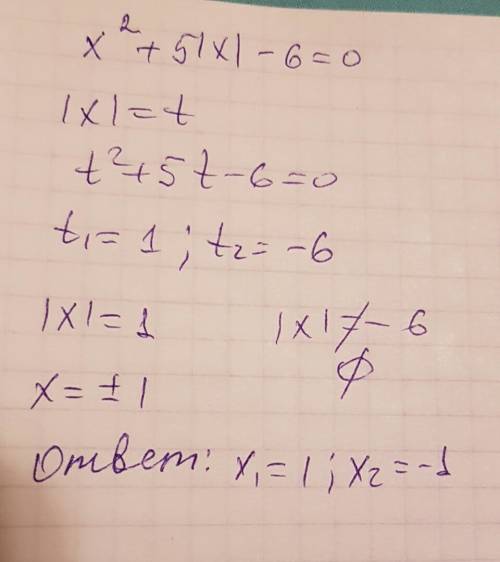 x² + 5|x| - 6 = 0
|x| = t
t² + 5t - 6 = 0
t₁ = 1 ; t₂ = -6
|x| = 1 |x| ≠ - 6
x = ± 1 ∅
Ответ: x₁ = 1 ; x₂ = -1